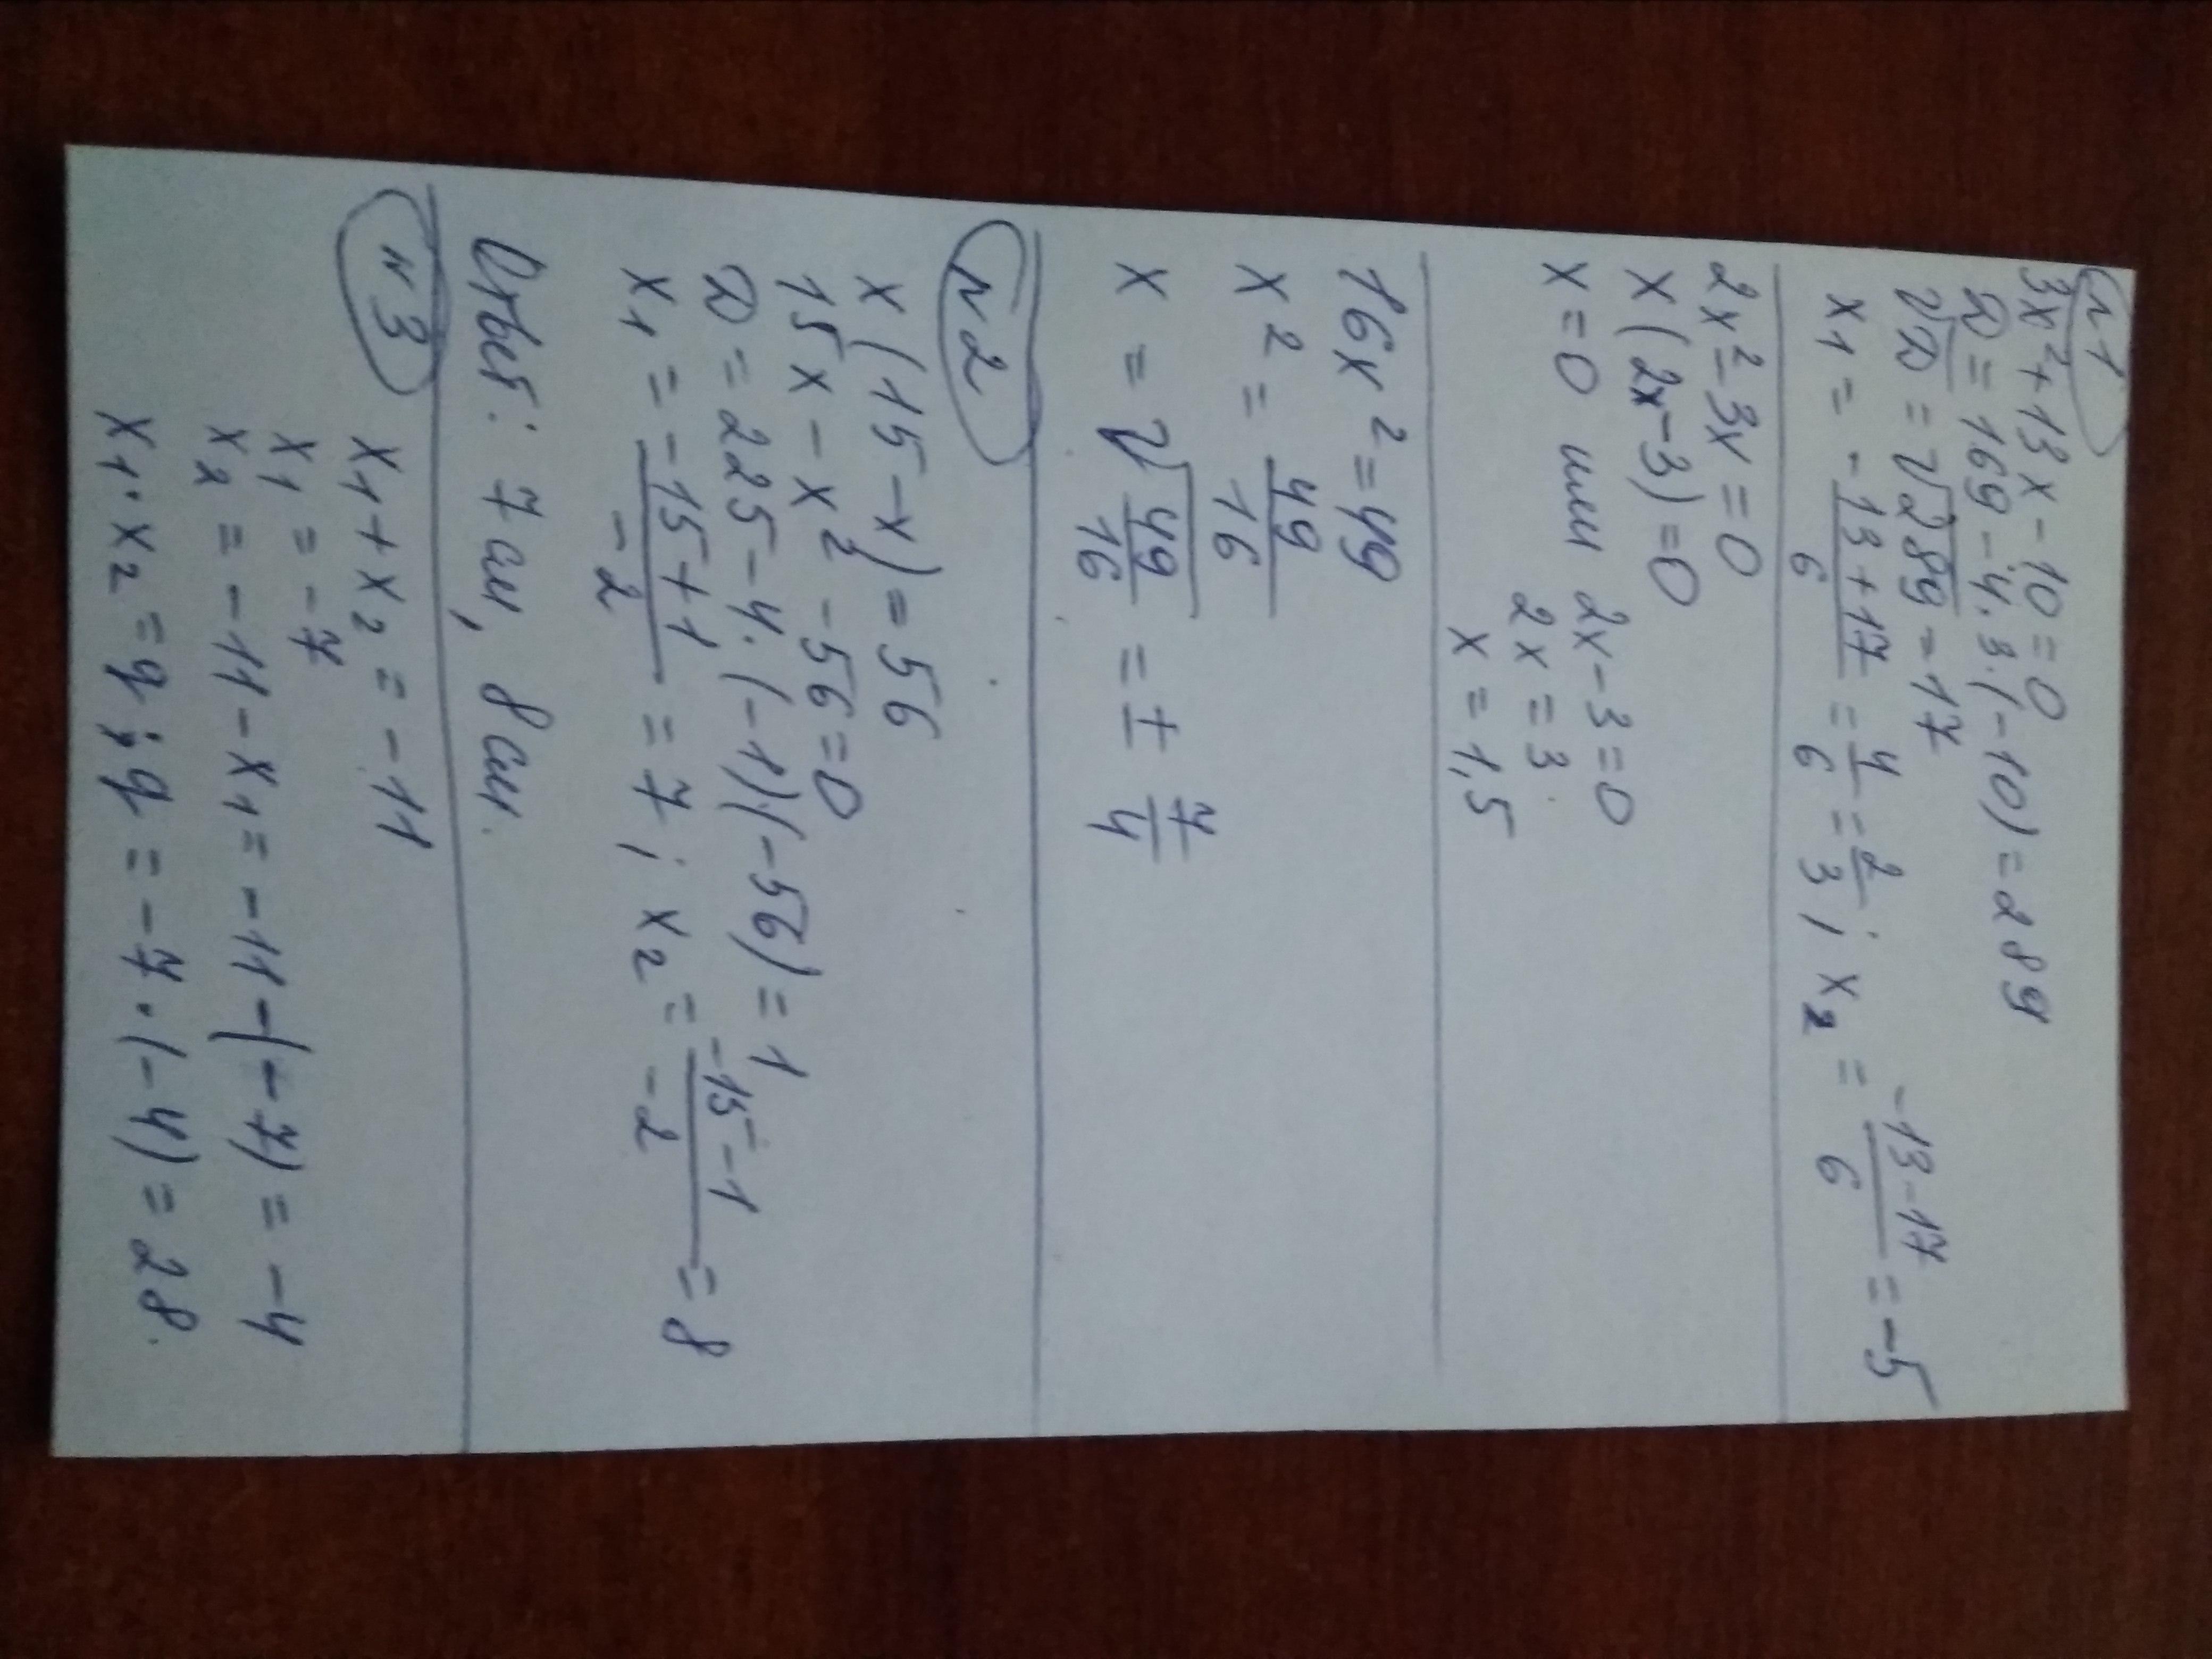 N1
3x² + 13x - 10 = 0
D = 169 - 4·3·(-10) = 289
√D = √289 = 17
x₁ = (-13 + 17)/6 = 4/6 = 2/3 ; x₂ = (-13 - 17)/6 = -5
2x² - 3x = 0
x(2x - 3) = 0
x = 0 или 2x - 3 = 0
2x = 3
x = 1,5
16x² = 49
x² = 49/16
x = √(49/16) = ± 7/4
N2
x(15 - x) = 56
15x - x² - 56 = 0
D = 225 - 4·(-1)(-56) = 1
x₁ = (-15 + 1)/-2 = 7 ; x₂ = (-15 - 1)/-2 = 8
Ответ: 7 см, 8 см.
N3
x₁ + x₂ = -11
x₁ = -7
x₂ = -11 - x₁ = -11 - (-7) = -4
x₁ · x₂ = q ; q = -7 · (-4) = 28.